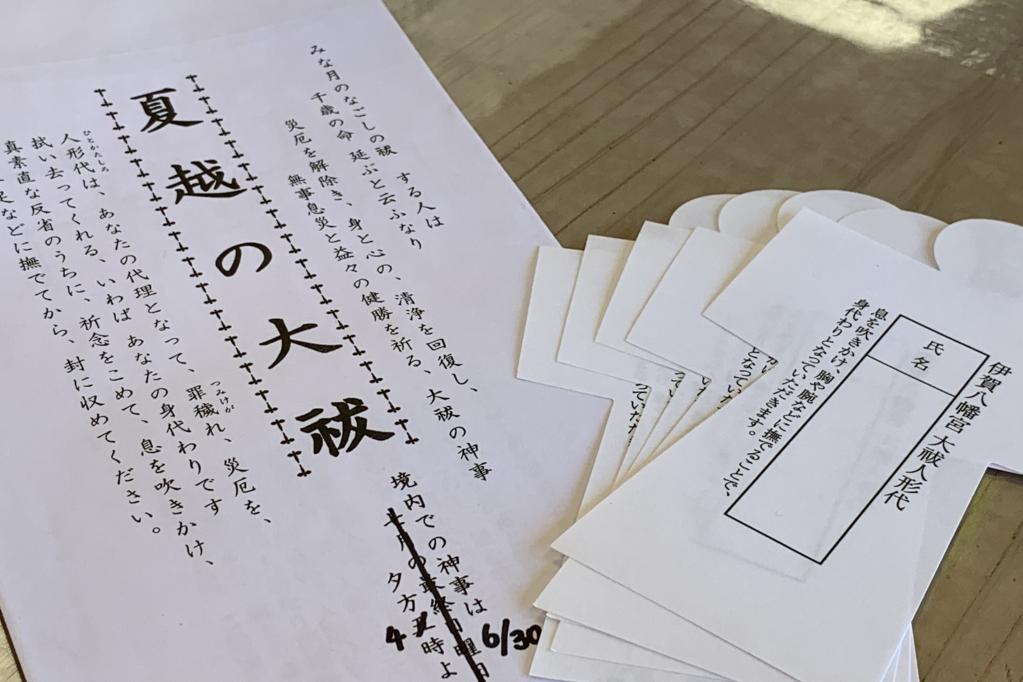 みな月のなごしの祓 する人は
千歳の命 延ぶと云ふなり
災厄を解除き、身と心の、清浄を回復し、
無事息災と益々の健勝を祈る、大祓の神事
境内での神事は
七月の最終日曜日
6/30
夕方五時よ
4
夏越の大祓
ひとかたしろ
つみけが
人形代は、あなたの代理となって、罪穢れ、災厄を、
拭い去ってくれる、いわば あなたの身代わりです
真素直な反省のうちに、祈念をこめて、息を吹きかけ、
足などに撫でてから、封に収めてください。
伊賀八幡宮 大祓人形代
氏名
息を吹きかけ、胸や腕などに撫でることで、
身代わりとなっていただきます。
となっていた